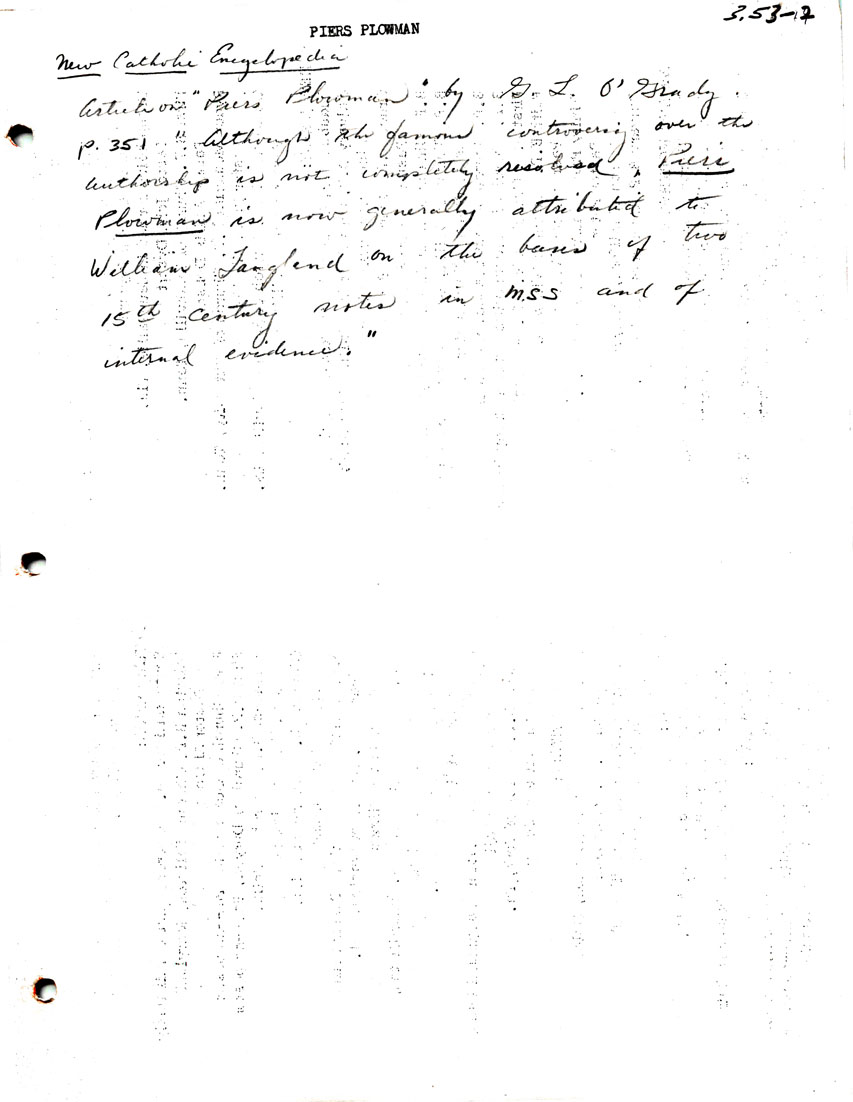 3.53-12
PIERS PLOWMAN
New Catholic Encyclopedia
Article on "Piers Plowman" by G. L. O'Grady.
p. 351 "Although the famous controversy over the
authorship is not completely resolved, Piers
Plowman is now generally attributed to
William Langland on the basis of two
15th century notes in MSS and of
internal evidence."